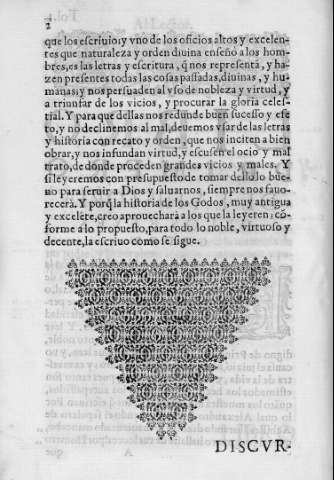 2
que los escriuio: y vno de los oficios altos y excelen-
tes que naturaleza y orden diuina enseño a los hom-
bres, es las letras y escritura, q̃ nos representã, y ha-
zen presentes todas las cosas passadas, diuinas, y hu-
manas: y nos persuaden al vso de nobleza y virtud, y
a triunfar de los vicios, y procurar la gloria celes-
tial. Y para que dellas nos redunde buen sucesso y efe
to, y no declinemos al mal, deuemos vsar de las letras
y historia con recato y orden, que nos inciten a bien
obrar, y nos infundan virtud, y escusen el ocio y mal
trato, de donde proceden grandes vicios y males. Y
si leyeremos con presupuesto de tomar dello lo bue-
no para seruir a Dios y saluarnos, siempre nos fauo-
recerà. Y porq̃ la historia de los Godos, muy antigua
y excelẽte, creo aprouecharà a los que la leyeren: cõ-
forme a lo propuesto, para todo lo noble, virtuoso y
decente, la escriuo como se sigue.
DISCVR-